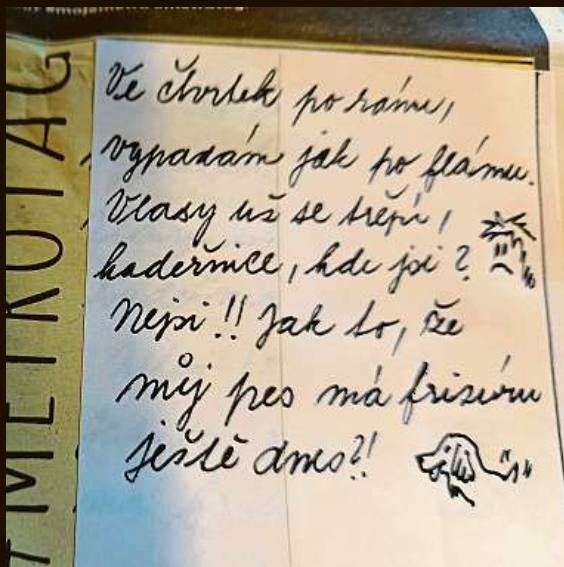 #METROTAG
Ve čtvrtek po ránu,
vypadám jak po flámu.
Vlasy už se třepí,
kadeřnice, kde jsi?
Nejsi!! Jak to, že
můj pes má frisúru
ještě dnes?!